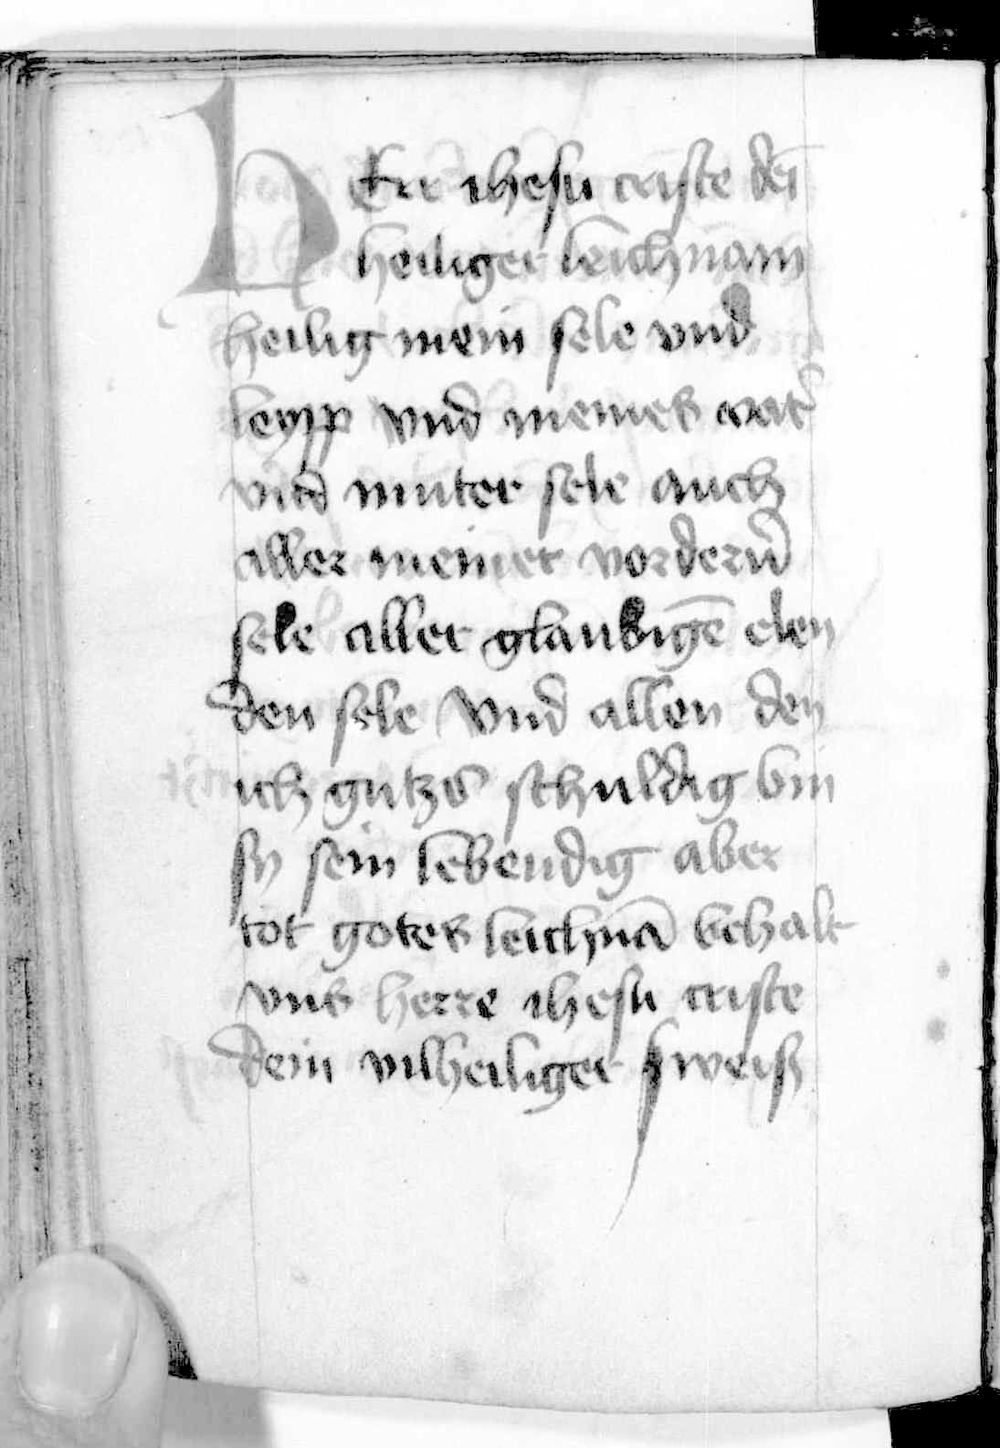 HErr ihesu criste dei
heiliger leichnam
heilig mein sele vnd
leypp vnd meines vat̓
vnd muter sele auch
aller meiner vorderñ
sele aller glaubigē elen
den sele Vnd allen den
ich gutzs schuldig bin
sy sein lebendig aber
tot gotes leichnā behalt
vns herre ihesu criste
dein vilheiliger sweiß